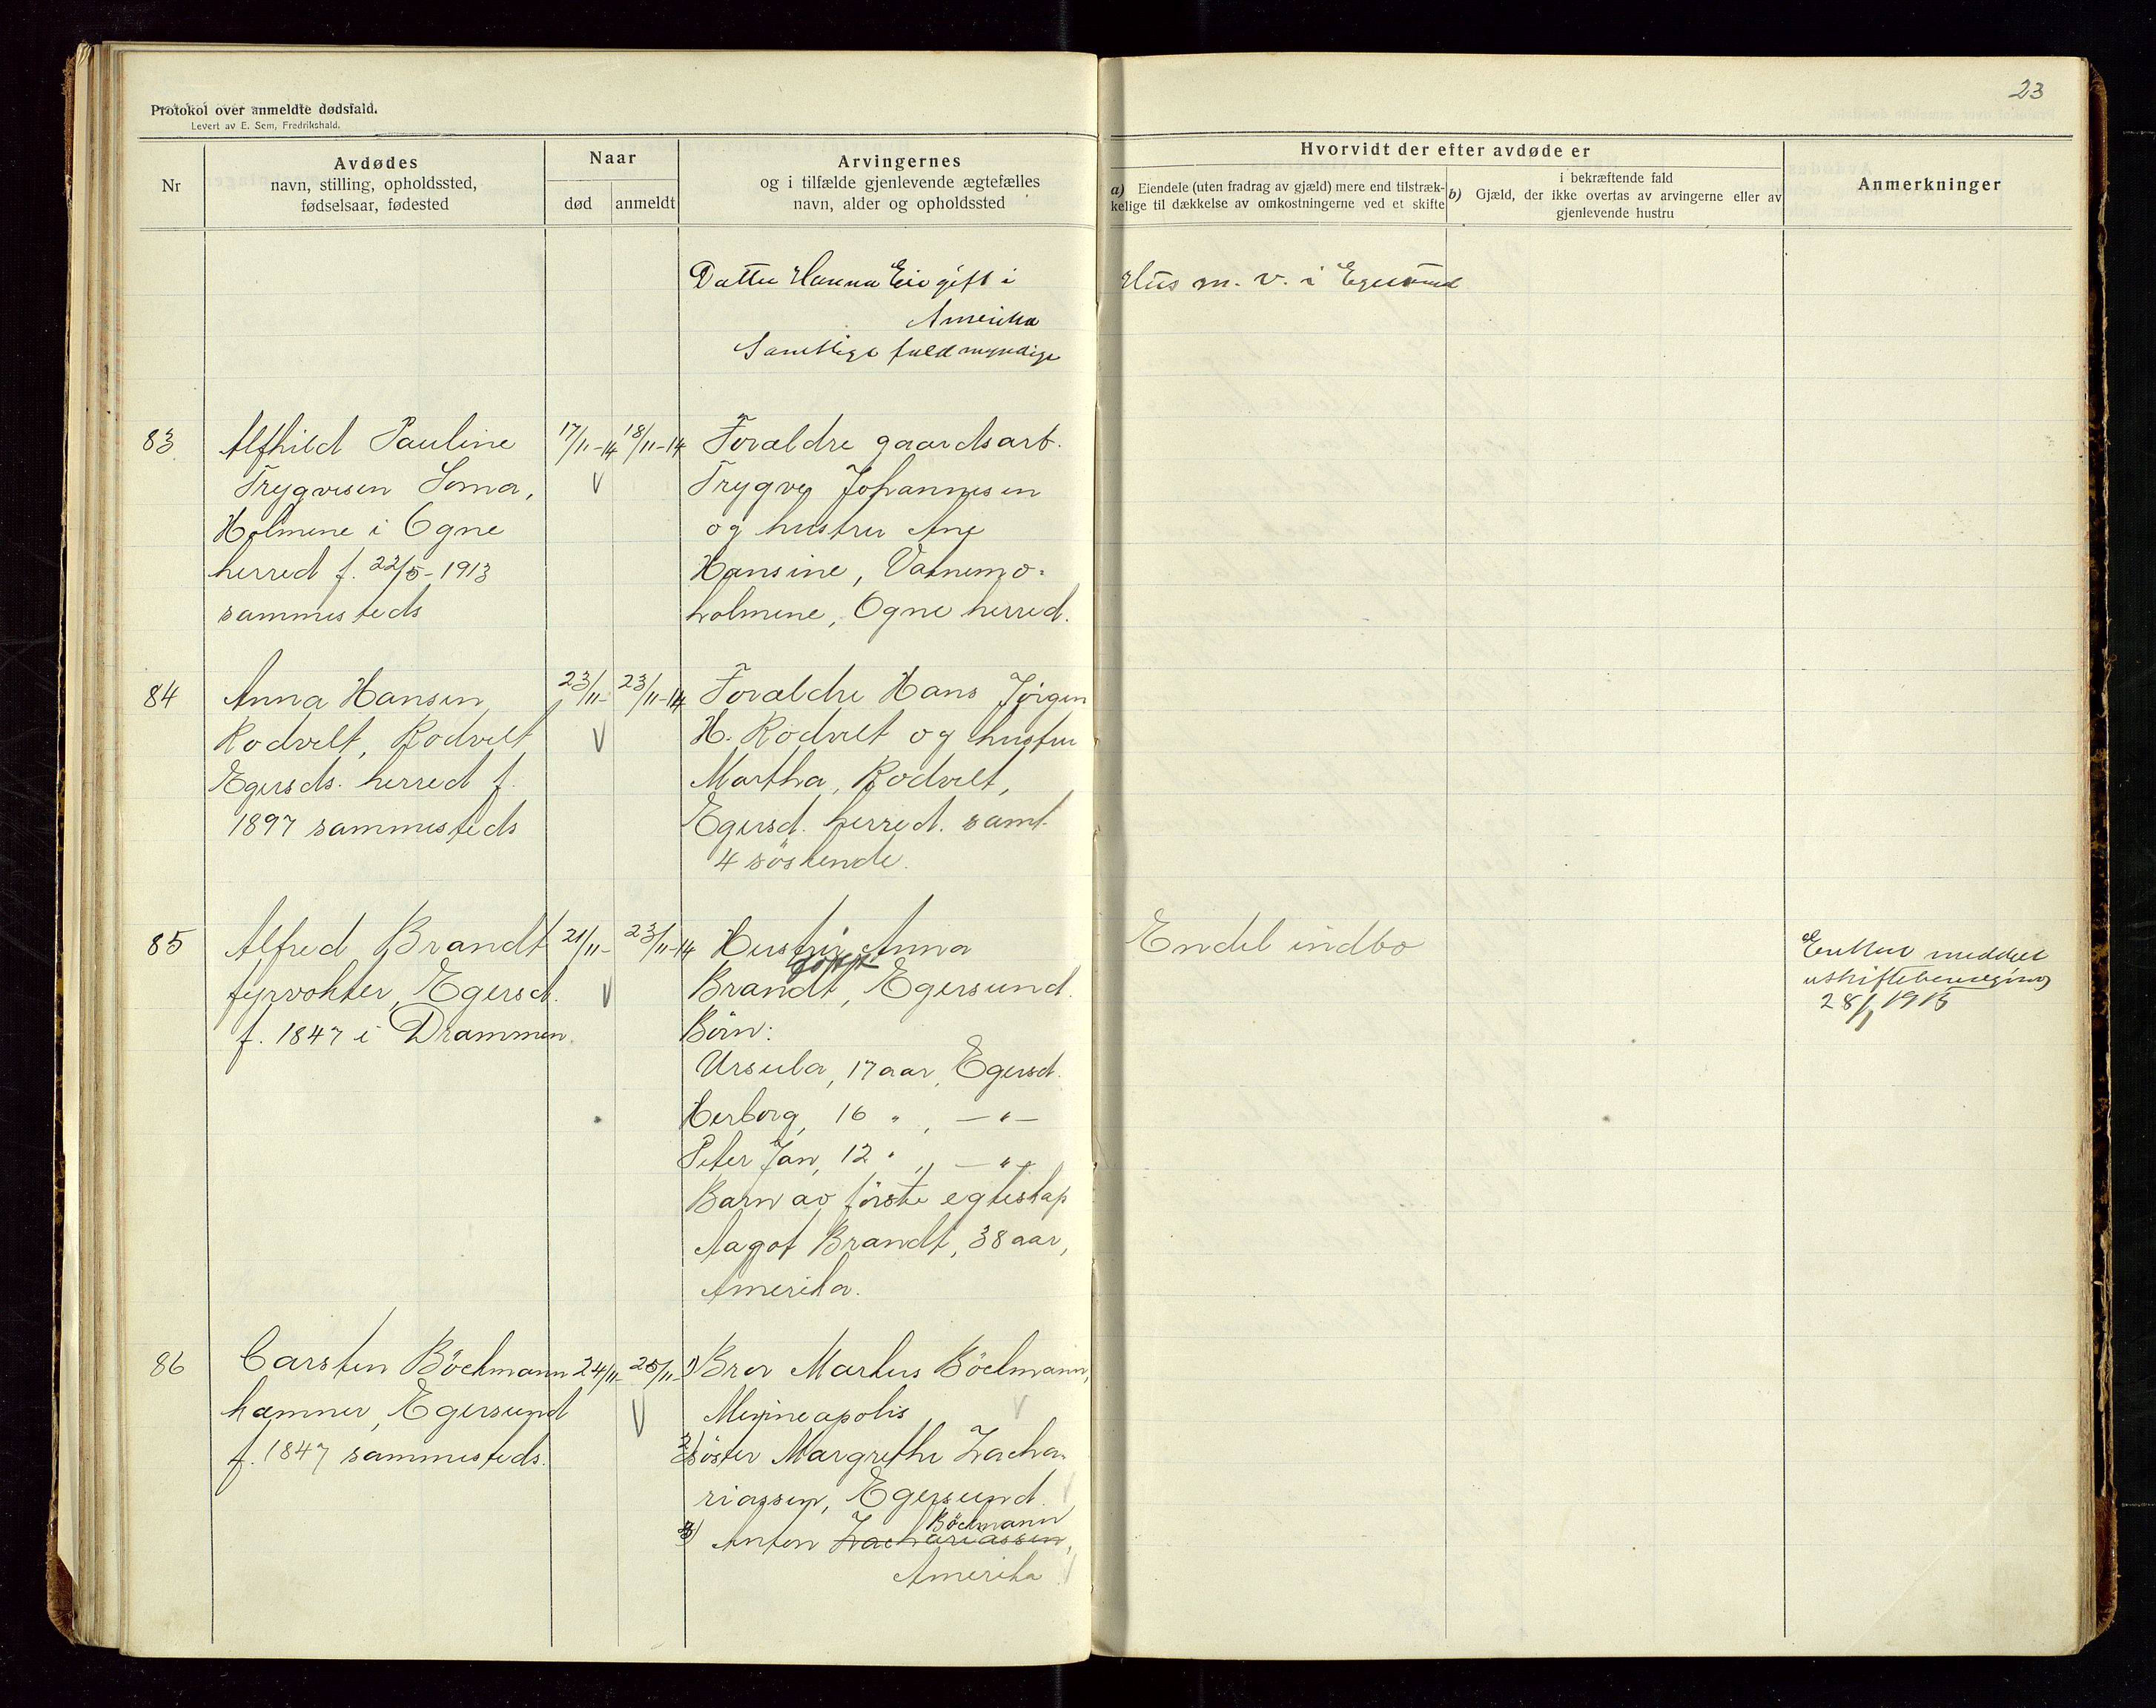 23
Protokol over anmeldte dødsfald.
Levert av E. Sem, Fredrikshald.
Nr
Avdødes
navn, stilling, opholdssted,
fødselsaar, fødested
Naar
død
anmeldt
Arvingernes
og i tilfælde gjenlevende ægtefælles
navn, alder og opholdssted
Hvorvidt der efter avdøde er
a) Eiendele (uten fradrag av gjæld) mere end tilstræk-
kelige til dækkelse av omkostningerne ved et skifte
i bekræftende fald
b) Gjæld, der ikke overtas av arvingerne eller av
gjenlevende hustru
Anmerkninger
Datter Hanna Eie gift i
Amerika
Samtlige fuldmyndige
Hus m. v. i Egersund
83
Alfhild Pauline
Trygvesen Soma,
Holmene i Ogne
herred f. 22/5-1913
sammesteds
17/11-14
18/11-14
Forældre gaardsarb.
Trygve Johannesen
og hustru Ane
Hansine, Vatnemo-
holmene, Ogne herred.
84
Anna Hansen
Rodvelt, Rodvelt
Egersds. herred f.
1897 sammesteds
23/11-
23/11-14
Forældre Hans Jörgen
H. Rodvelt og hustru
Martha, Rodvelt,
Egersd. herred. samt
4 söskende.
85
Alfred Brandt
fyrvokter, Egersd.
f. 1847 i Drammen.
21/11-
23/11-14
Hustru Anna
Brandt, Egersund.
Börn:
Ursula, 17 aar, Egersd.
Herborg, 16 " , — " —
Peter Jan, 12 " , — " —
Barn av förste egteskap
Aagot Brandt, 38 aar,
Amerika.
Endel indbo
Enken meddelt
uskiftebevilging
28/1 1915
86
Carsten Böckmann
hæmner, Egersund
f. 1847 sammesteds.
24/11-
25/11-
1) Bror Markus Böckmann,
Minneapolis
2) söster Margrethe Zacha-
riassen, Egersund.
3) Anton Zachariassen,
Böckmann
Amerika